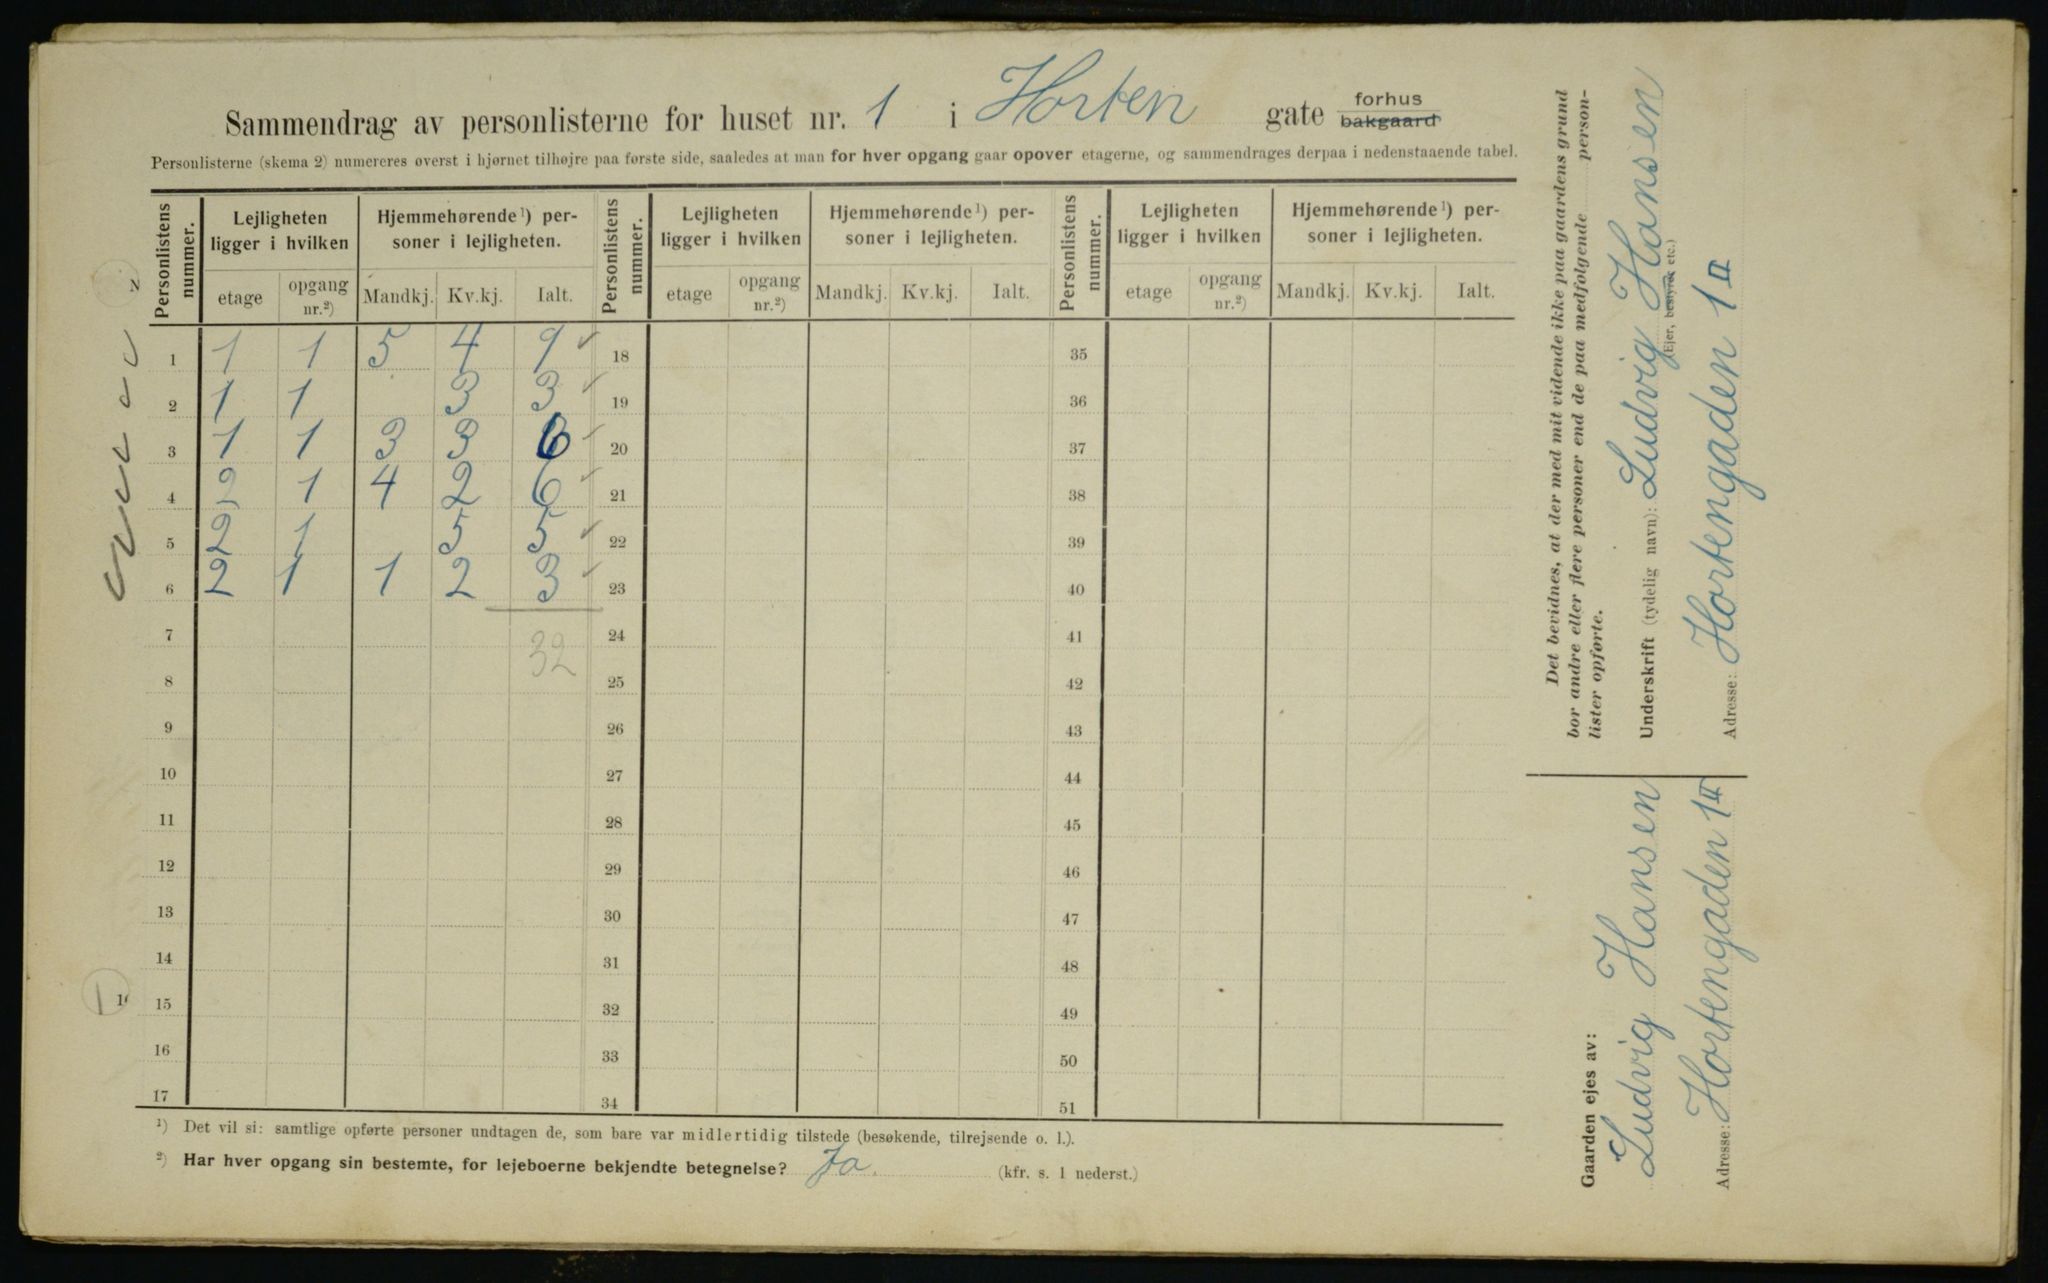 Sammendrag av personlisterne for huset nr. 1 i Horten gate forhus bakgaard
Personlisterne (skema 2) numereres øverst i hjørnet tilhøjre paa første side, saaledes at man for hver opgang gaar opover etagerne, og sammendrages derpaa i nedenstaaende tabel.
Personlistens nummer. Lejligheten ligger i hvilken Hjemmehørende ¹) personer i lejligheten. Personlistens nummer. Lejligheten ligger i hvilken Hjemmehørende ¹) personer i lejligheten. Personlistens nummer. Lejligheten ligger i hvilken Hjemmehørende ¹) personer i lejligheten.
etage opgang nr.²) Mandkj. Kv.kj. Ialt. etage opgang nr.²) Mandkj. Kv.kj. Ialt. etage opgang nr.²) Mandkj. Kv.kj. Ialt.
1 1 1 5 4 9 18 35
2 1 1 3 3 19 36
3 1 1 3 3 6 20 37
4 2 1 4 2 6 21 38
5 2 1 5 5 22 39
6 2 1 1 2 3 23 40
7 32 24 41
8 25 42
9 26 43
10 27 44
11 28 45
12 29 46
13 30 47
14 31 48
15 32 49
16 33 50
17 34 51
¹) Det vil si: samtlige opførte personer undtagen de, som bare var midlertidig tilstede (besøkende, tilrejsende o. l.).
²) Har hver opgang sin bestemte, for lejeboerne bekjendte betegnelse? Ja. (kfr. s. 1 nederst.)
Det bevidnes, at der med mit vidende ikke paa gaardens grund
bor andre eller flere personer end de paa medfølgende person-
lister opførte.
Underskrift (tydelig navn): Ludvig Hansen
(Ejer, bestyrer etc.)
Adresse: Hortengaden 1 II
Gaarden ejes av:
Ludvig Hansen
Adresse: Hortengaden 1 II